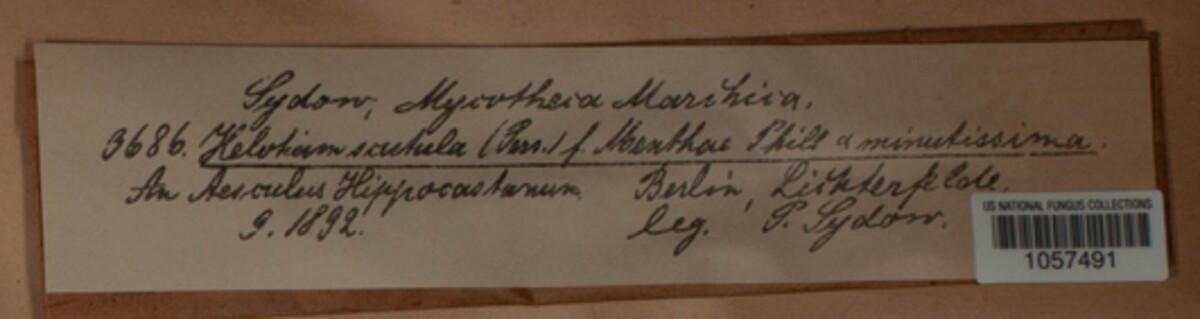 Sydow, Mycotheca Marchica.
3686. Helotium scutula (Pers.) f. Menthae Phill & minutissima.
An Aesculus Hippocastanum Berlin, Lichterfelde.
9. 1892. leg. P. Sydow.
US NATIONAL FUNGUS COLLECTIONS
1057491